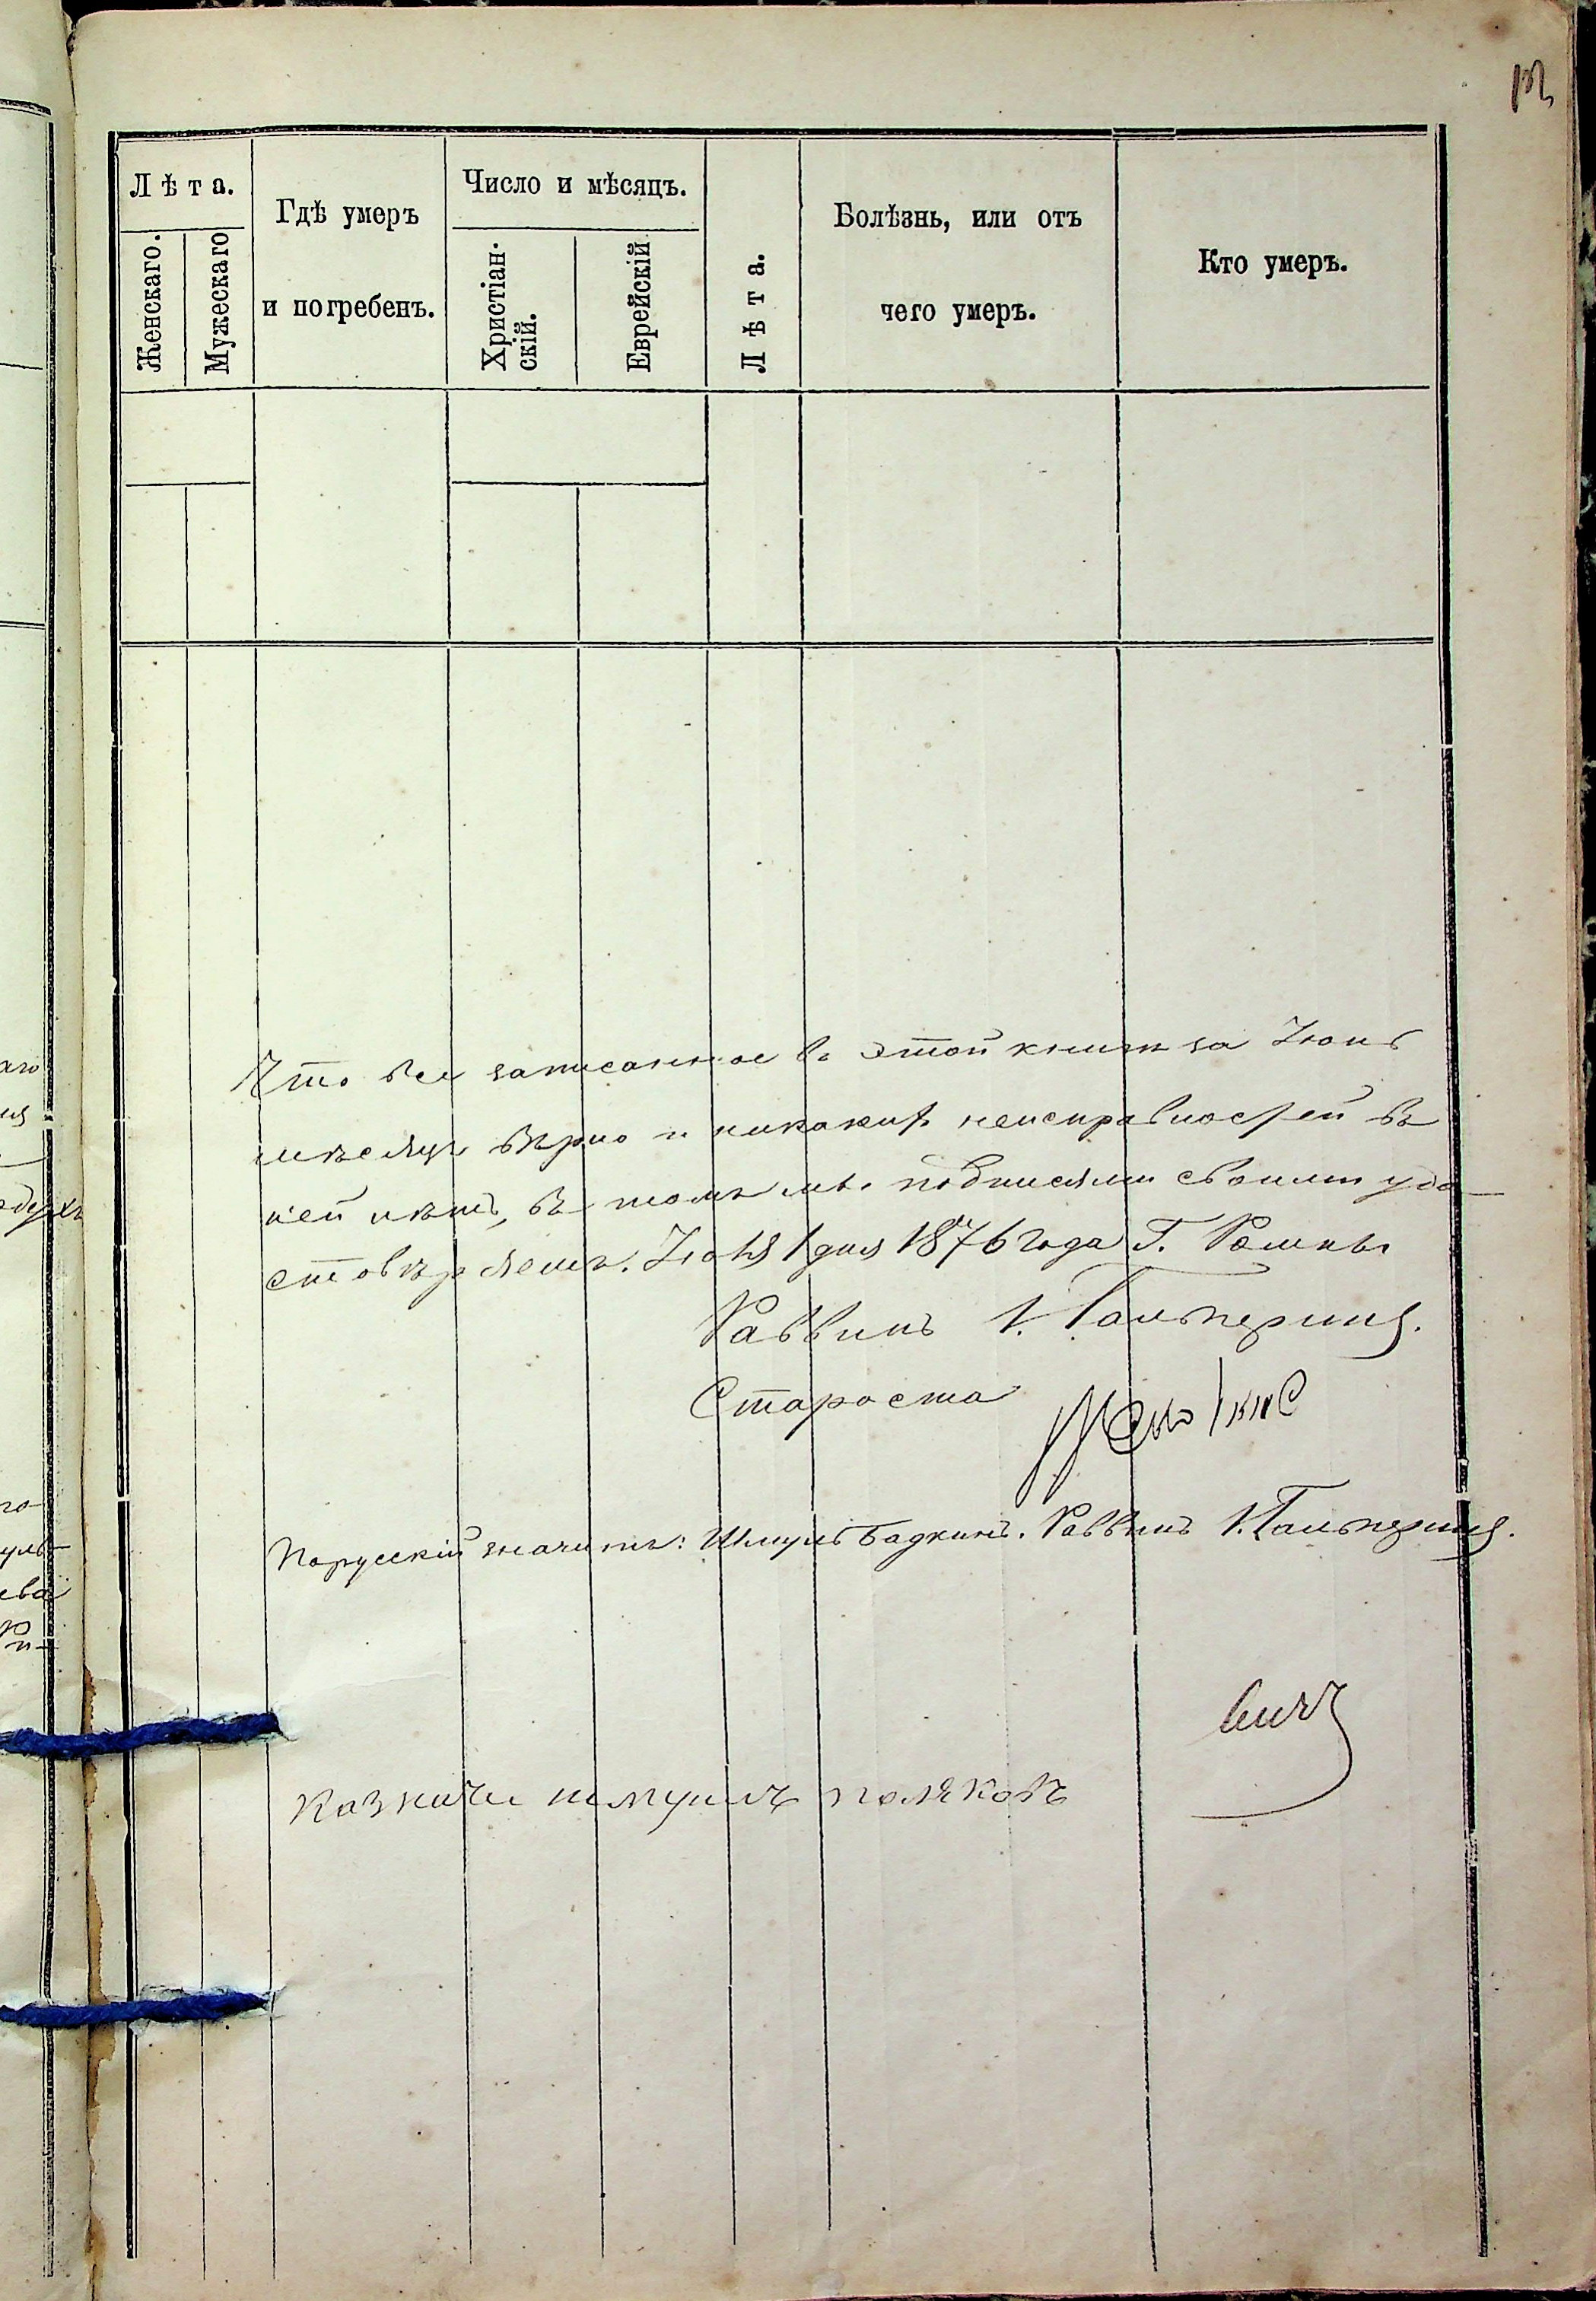 Лѣта.
Женскаго.
Мужескаго
Гдѣ умеръ
и погребенъ.
Число и мѣсяцъ.
Христіан-
скій.
Еврейскій
Лѣта.
Болѣзнь, или отъ
чего умеръ.
Кто умеръ.
Что все записанное въ этой книгѣ за Іюнь
мѣсяцъ вѣрно и никакихъ неисправностей въ
ней нѣтъ, въ томъ мы подписями своими удо-
стовѣряемъ. Іюня 1 дня 1876 года Г. Ромны
Раввинъ І. Гальперинъ.
Староста
Порусскій значитъ: Шмуль Бадкинъ. Раввинъ І. Гальперинъ.
вичъ
казначи шмуилъ поляковъ